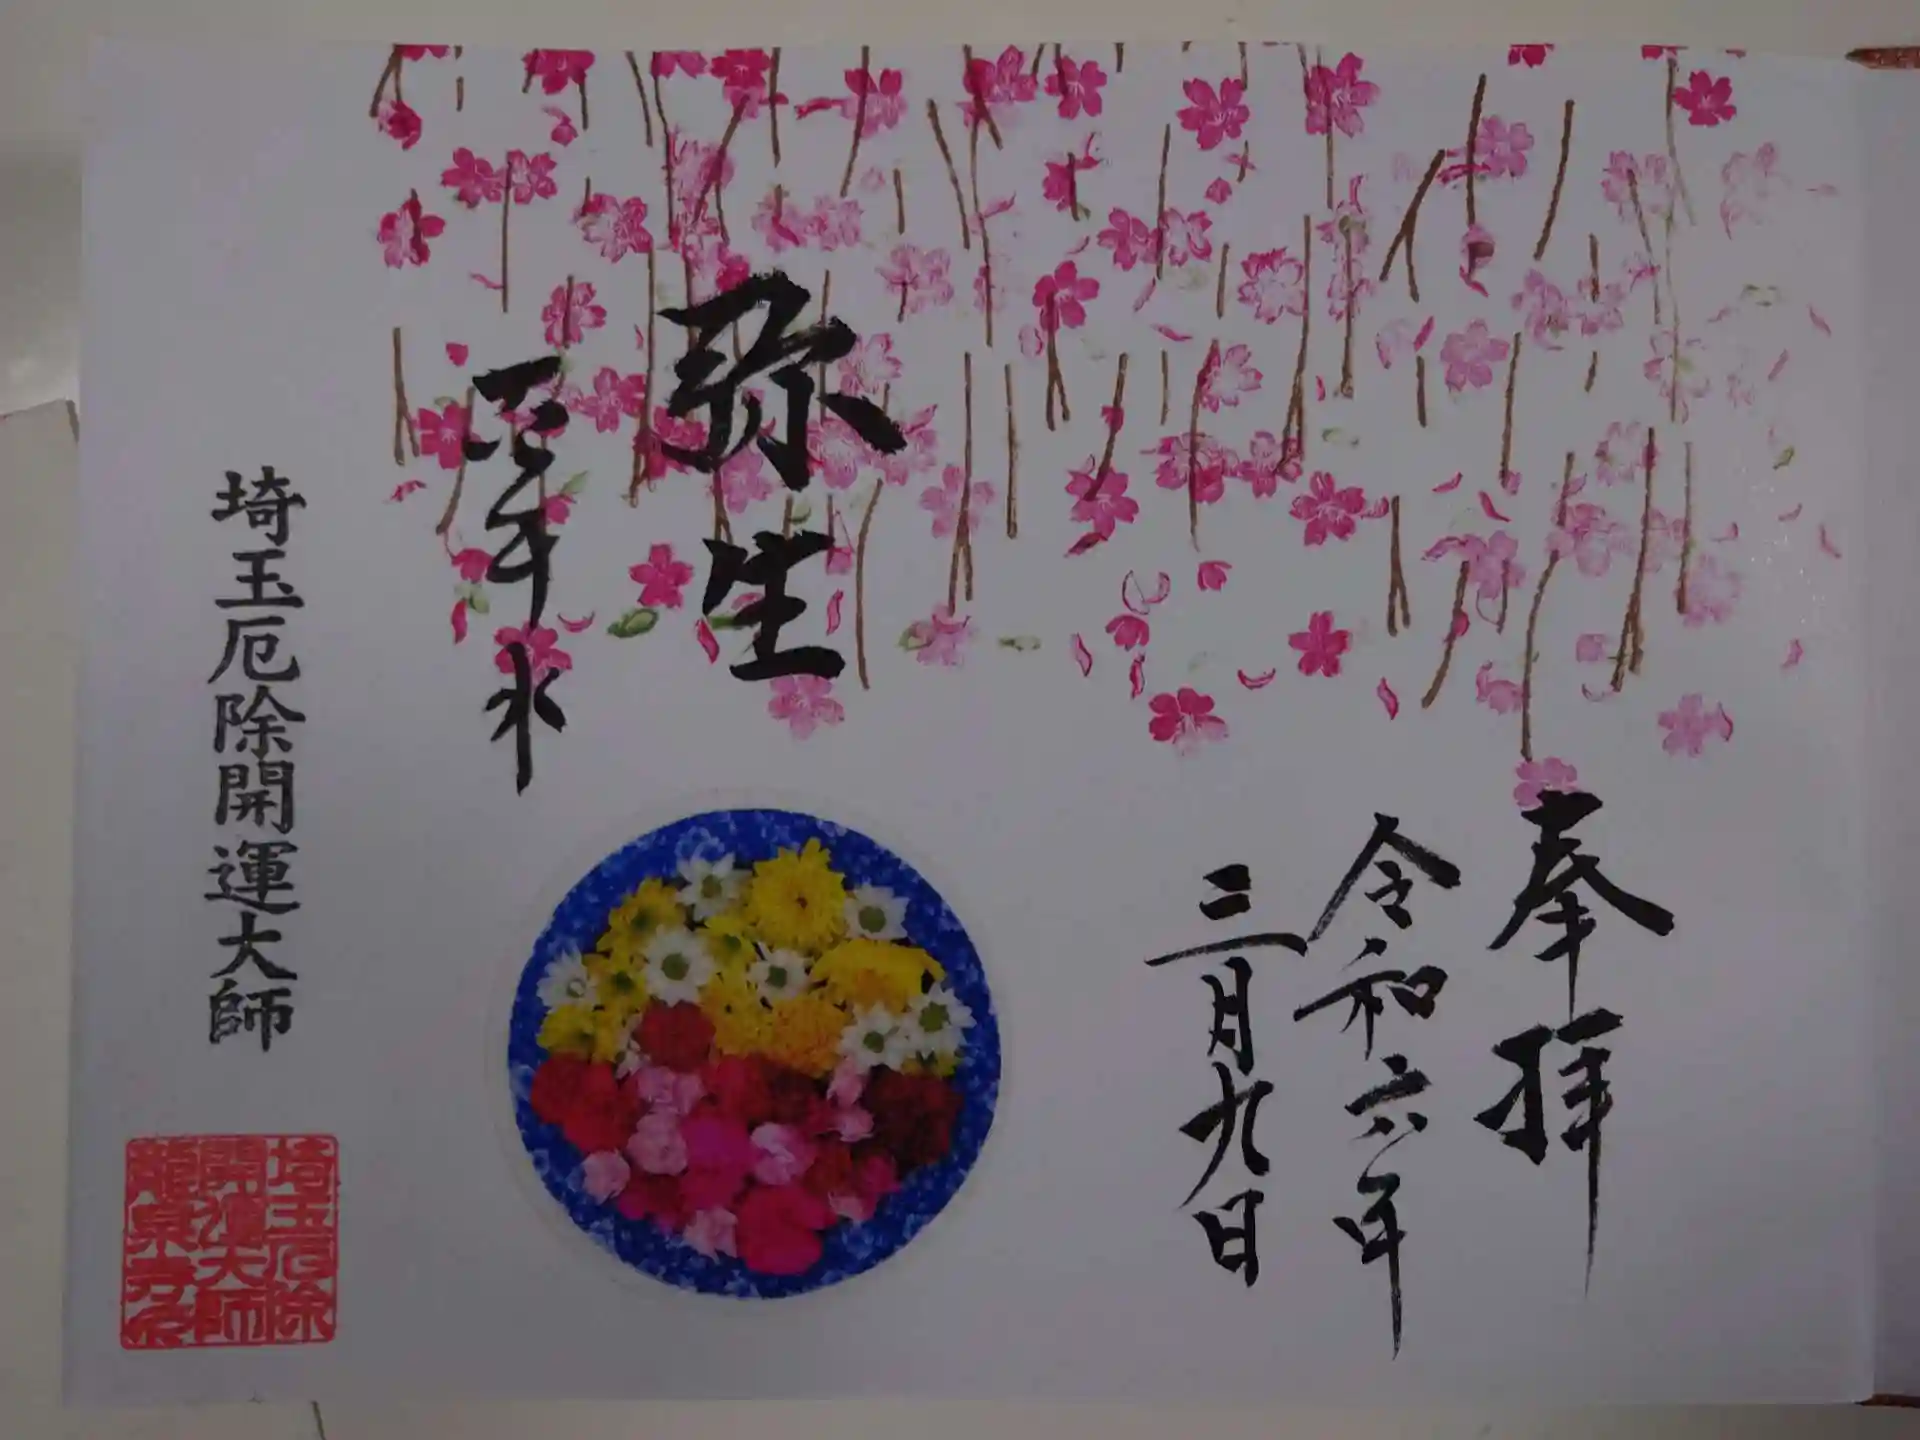 奉拝
令和六年
三月九日
弥生
花手水
埼玉厄除開運大師
埼玉厄除
開運大師
龍泉寺印